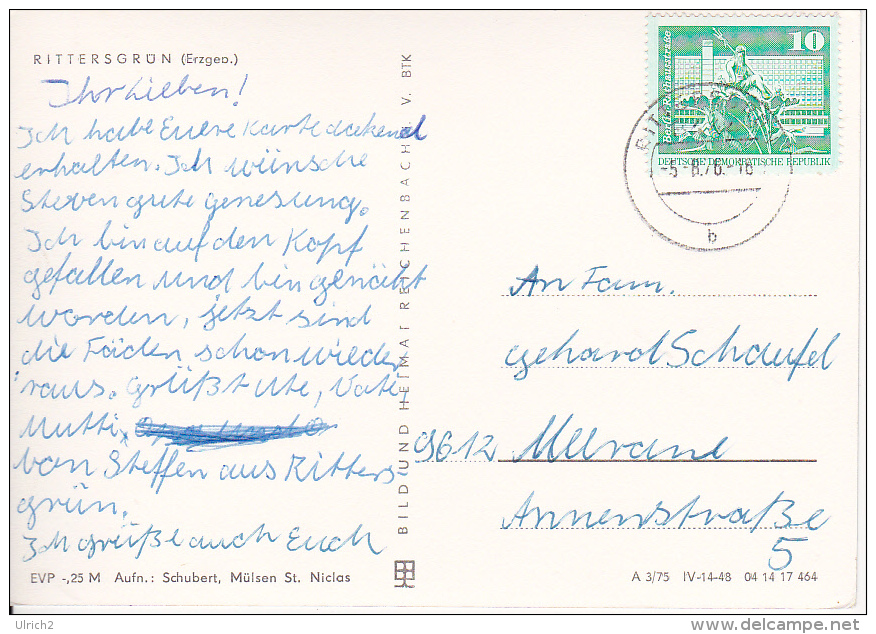 RITTERSGRÜN (Erzgeb.)
Ihr Lieben!
Ich habe Euere Karte dackend
erhalten. Ich wünsche
Steven gute genesung.
Ich bin auf den Kopf
gefallen und bin genäht
worden, jetzt sind
die Fäden schon wieder
raus. Grüßt Ute, Vati,
Mutti,
von Steffen aus Ritters-
grün.
Ich grüße auch Euch
EVP -,25 M Aufn.: Schubert, Mülsen St. Niclas
BILD UND HEIMAT REICHENBACH I. V. BTK
10
DEUTSCHE DEMOKRATISCHE REPUBLIK
b
An Fam.
Gehard Schaufel
9612 Meerane
Annenstraße
5
A 3/75 IV-14-48 04 14 17 464
Ulrich2
delcampe.net